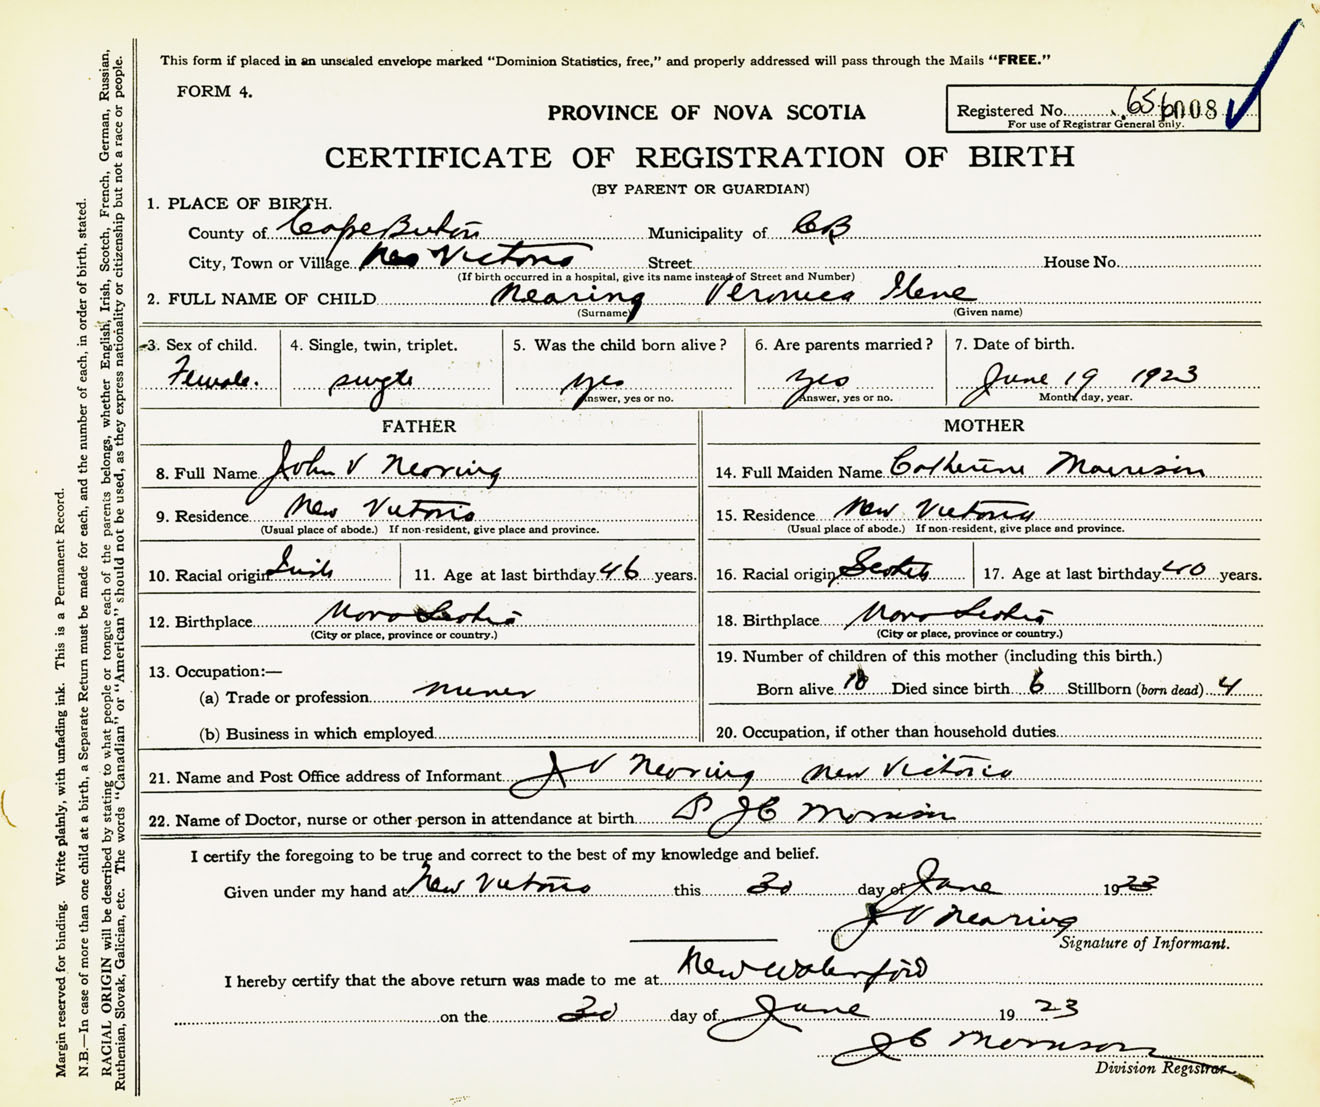 This form if placed in an unsealed envelope marked "Dominion Statistics, free," and properly addressed will pass through the Mails "FREE."
FORM 4.
PROVINCE OF NOVA SCOTIA
Registered No. 656008
For use of Registrar General only.
CERTIFICATE OF REGISTRATION OF BIRTH
(BY PARENT OR GUARDIAN)
1. PLACE OF BIRTH.
County of Cape Breton Municipality of CB
City, Town or Village New Victoria Street House No.
(If birth occurred in a hospital, give its name instead of Street and Number)
2. FULL NAME OF CHILD Nearing Veronica Ilene
(Surname) (Given name)
3. Sex of child. 4. Single, twin, triplet. 5. Was the child born alive? 6. Are parents married? 7. Date of birth.
Female. single yes yes June 19 1923
Answer, yes or no. Answer, yes or no. Month, day, year.
FATHER MOTHER
8. Full Name John V Nearing 14. Full Maiden Name Catherine Morrison
9. Residence New Victoria 15. Residence New Victoria
(Usual place of abode.) If non-resident, give place and province. (Usual place of abode.) If non-resident, give place and province.
10. Racial origin Irish 11. Age at last birthday 46 years. 16. Racial origin Scotch 17. Age at last birthday 40 years.
12. Birthplace Nova Scotia 18. Birthplace Nova Scotia
(City or place, province or country.) (City or place, province or country.)
13. Occupation:— 19. Number of children of this mother (including this birth.)
(a) Trade or profession miner Born alive Died since birth 6 Stillborn (born dead) 4
(b) Business in which employed 20. Occupation, if other than household duties
21. Name and Post Office address of Informant J V Nearing New Victoria
22. Name of Doctor, nurse or other person in attendance at birth JC Morrison
I certify the foregoing to be true and correct to the best of my knowledge and belief.
Given under my hand at New Victoria this 30 day of June 1923
J V Nearing
Signature of Informant.
I hereby certify that the above return was made to me at New Waterford
on the 30 day of June 1923
JC Morrison
Division Registrar
Margin reserved for binding. Write plainly, with unfading ink. This is a Permanent Record.
N.B.—In case of more than one child at a birth, a Separate Return must be made for each, and the number of each, in order of birth, stated.
RACIAL ORIGIN will be described by stating to what people or tongue each of the parents belongs, whether English, Irish, Scotch, French, German, Russian,
Ruthenian, Slovak, Galician, etc. The words "Canadian" or "American" should not be used, as they express nationality or citizenship but not a race or people.